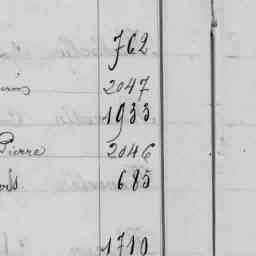 762
2047
1933
Pierre 2046
685
1710